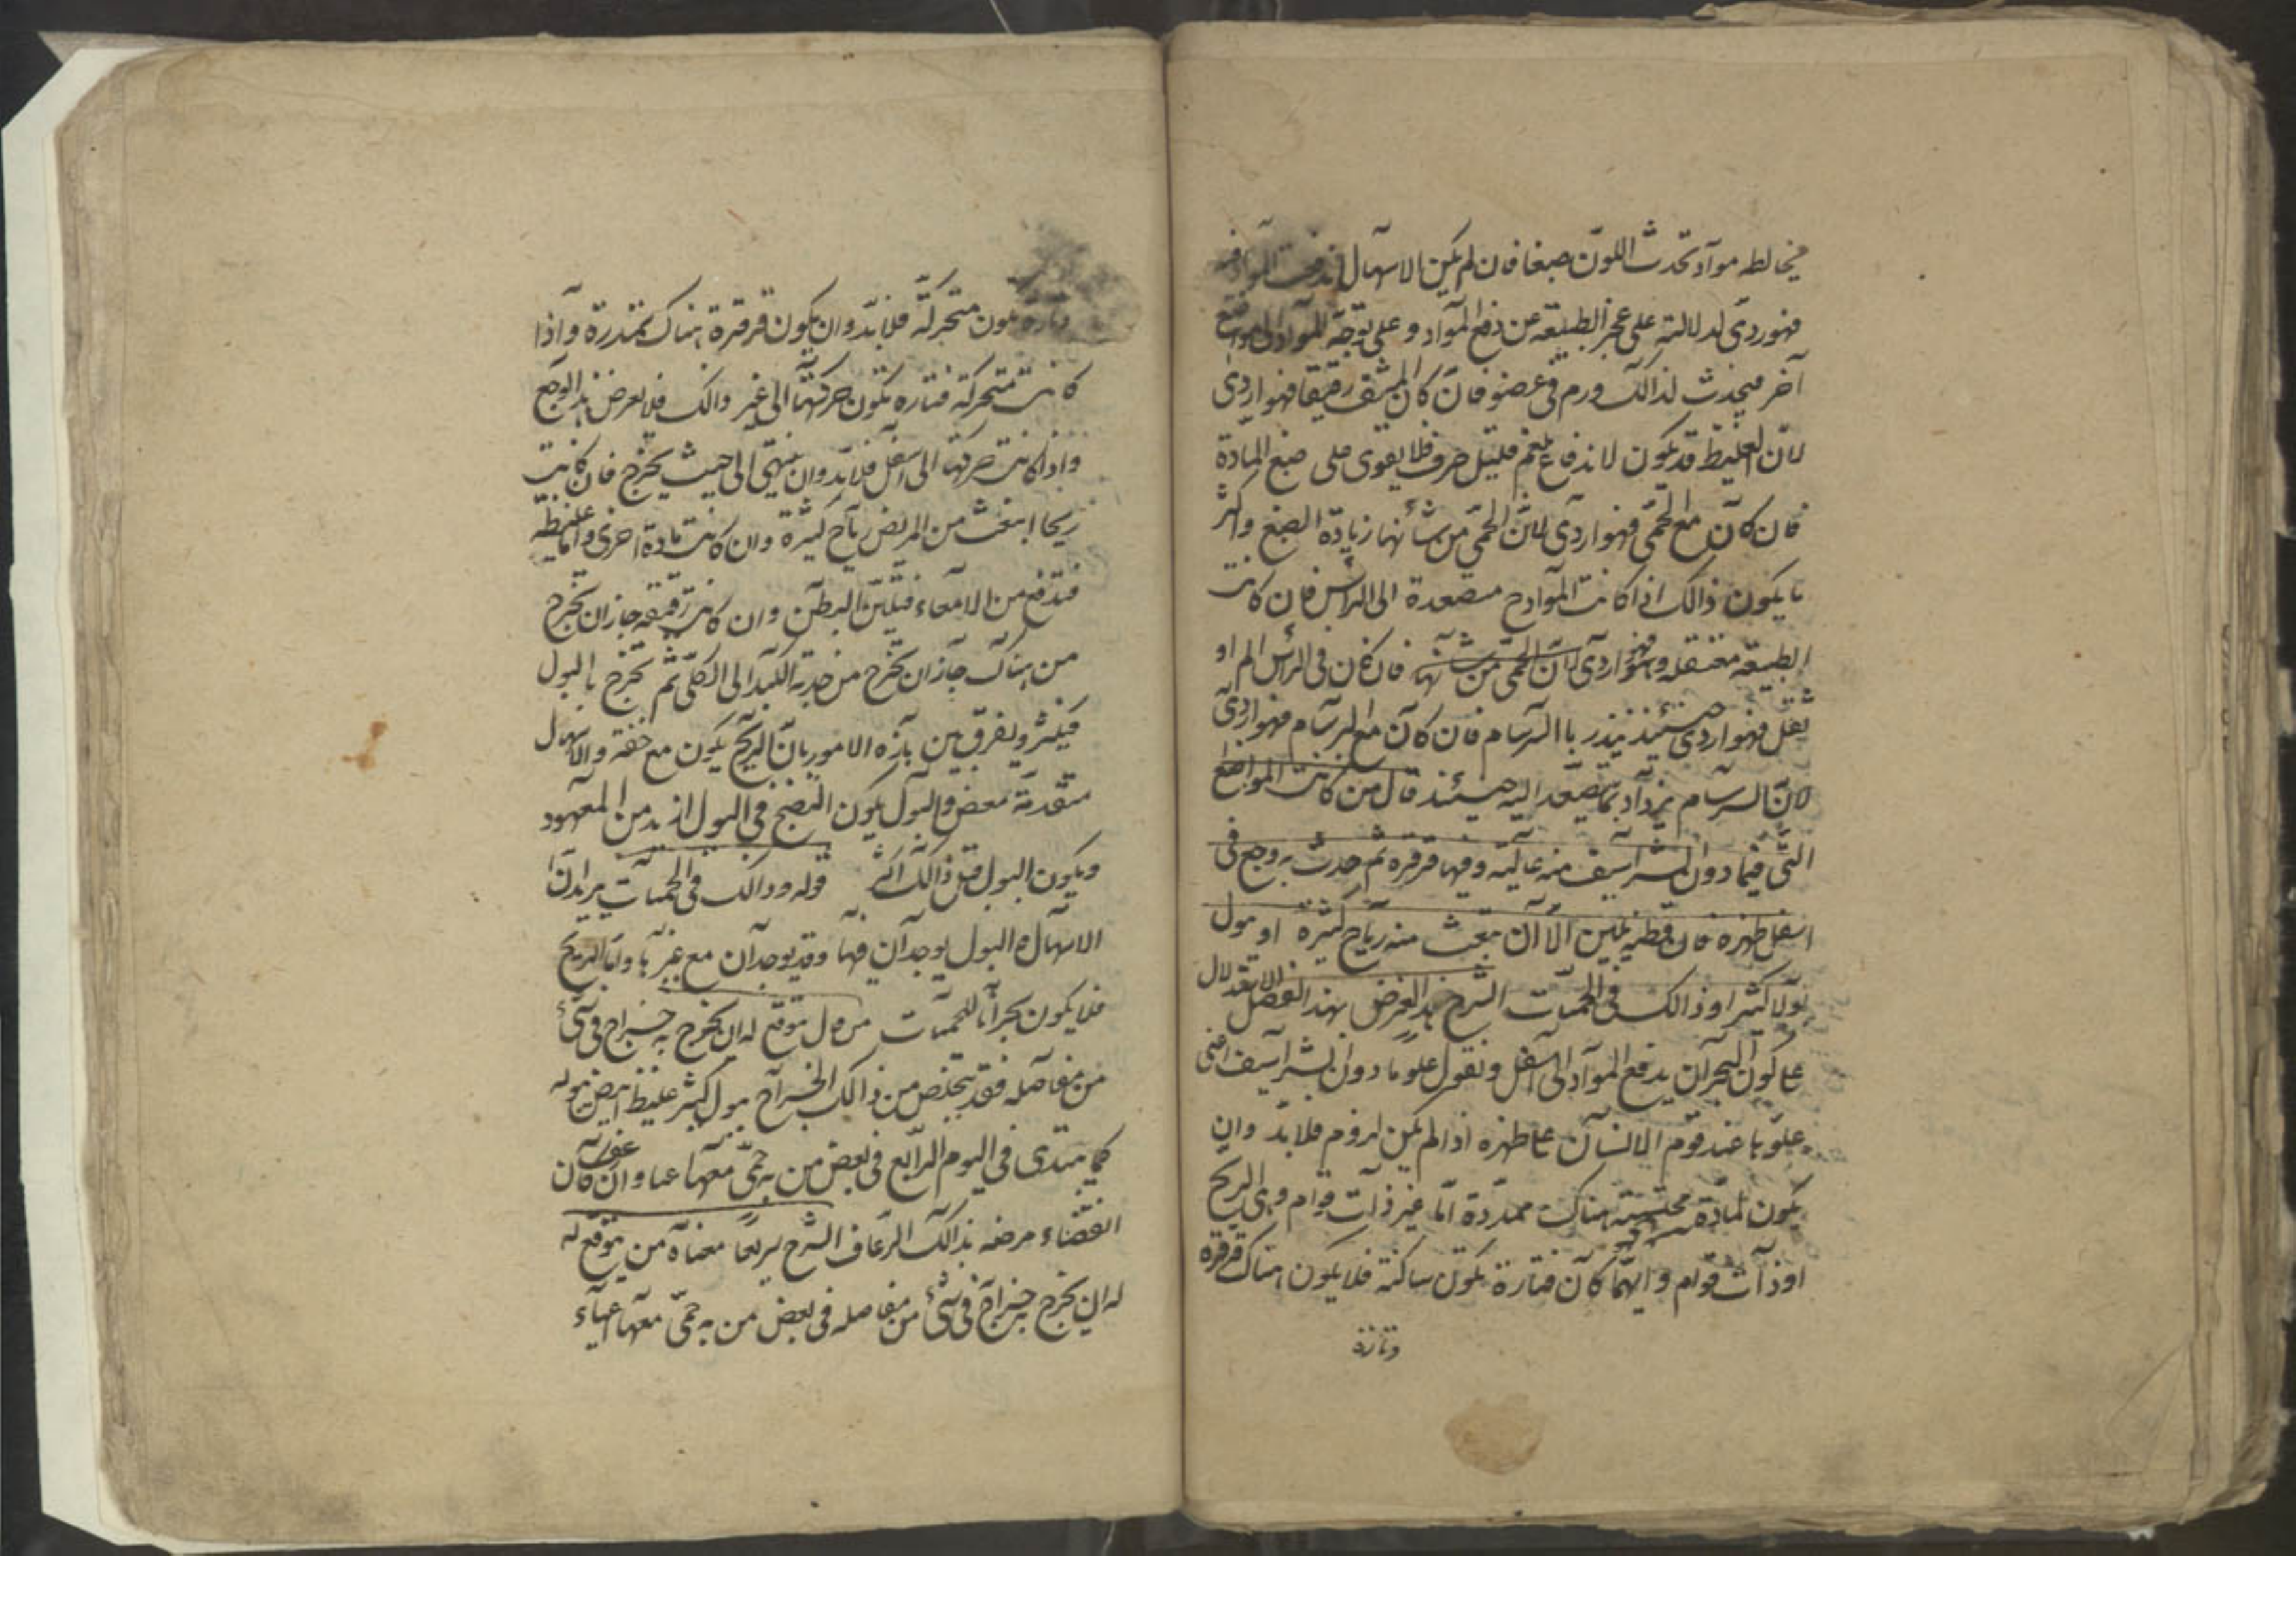 فيخالطه مواد تحدث اللون صبغا فان لم يكن الاسهال اندفعت المواد فيه
فهو ردى لدلالته على عجز الطبيعة عن دفع المواد و على توجه المواد الى موضع
آخر فيحدث لذالك ورم فى عضو فان كان المشف رقيقا فهو اردى
لان الغليظ قد يكون لاندفاع بلغم قليل صرف فلا يقوى على صبغ المادة
فان كان مع الحمى فهو اردى لان الحمى من شأنها زيادة الصبغ واكثر
ما يكون ذالك اذا كانت المواد متصعدة الى الراس فان كانت
الطبيعة معتقلة فهو اردى لان الحمى من شأنها فان كان فى الراس الم او
ثقل فهو اردى حينئذ ينذر باالسرسام فان كان مع السرسام فهو اردى
لان السرسام يزداد بما يتصعد اليه حينئذ قال من كانت المواضع
التى فيما دون الشراسيف منه عالية وفيها قرقرة ثم حدث به وجع فى
اسفل ظهره فان بطنه يلين الا ان تنبعث منه رياح كثيرة او يبول
بولا كثيرا وذالك فى الحميات الشرح هذا الغرض بهذا الفصل الاستدلال
على كون البحران يدفع المواد الى اسفل ونقول علو ما دون الشراسيف اعنى
علوها عند قوم الانسان على ظهره اذا لم يكن لورم فلابد وان
يكون لمادة محتبسة هناك ممددة اما غير ذات قوام وهى الريح
او ذات قوام وايهما كان فتارة تكون ساكنة فلا يكون هناك قرقرة
وتارة
وتارة يكون متحركة فلابد وان يكون قرقرة هناك متمدرة واذا
كانت متحركة فتارة تكون حركتها الى غير ذالك فلا يعرض هذا الوجع
واذا كانت حركتها الى اسفل فلابد وان ينتهى الى حيث يخرج فان كانت
ريحا انبعثت من المريض رياح كثيرة وان كانت مادة اخرى واما غليظة
فتدفع من الامعاء فيلين البطن وان كانت رقيقة جاز ان تخرج
من هناك جاز ان تخرج من حدبة الكبد الى الكلى ثم تخرج بالبول
فيكثر ويفرق بين هاذه الامور بان الريح يكون مع خفة والاسهال
متقدمة مغص والبول يكون النضج فى البول ازيد من المعهود
ويكون البول قبل ذالك اكثر قوله وذالك فى الحميات يريد ان
الاسهال والبول يوجدان فيها وقد يوجدان مع غيرها واما الريح
فلا يكون بحرانا للحميات من كل توقع له ان يخرج به خراج فى شئ
من مفاصله فقد يتخلص من ذالك الخراج ببول كثير غليظ ابيض يبوله
كما يبتدى فى اليوم الرابع فى بعض من به حمى معها عيا وان كان
انقضاء مرضه بذالك الرعاف الشرح سريعا معناه من يتوقع له
له ان يخرج خراج فى شئ من مفاصله فى بعض من به حمى معها اعياء